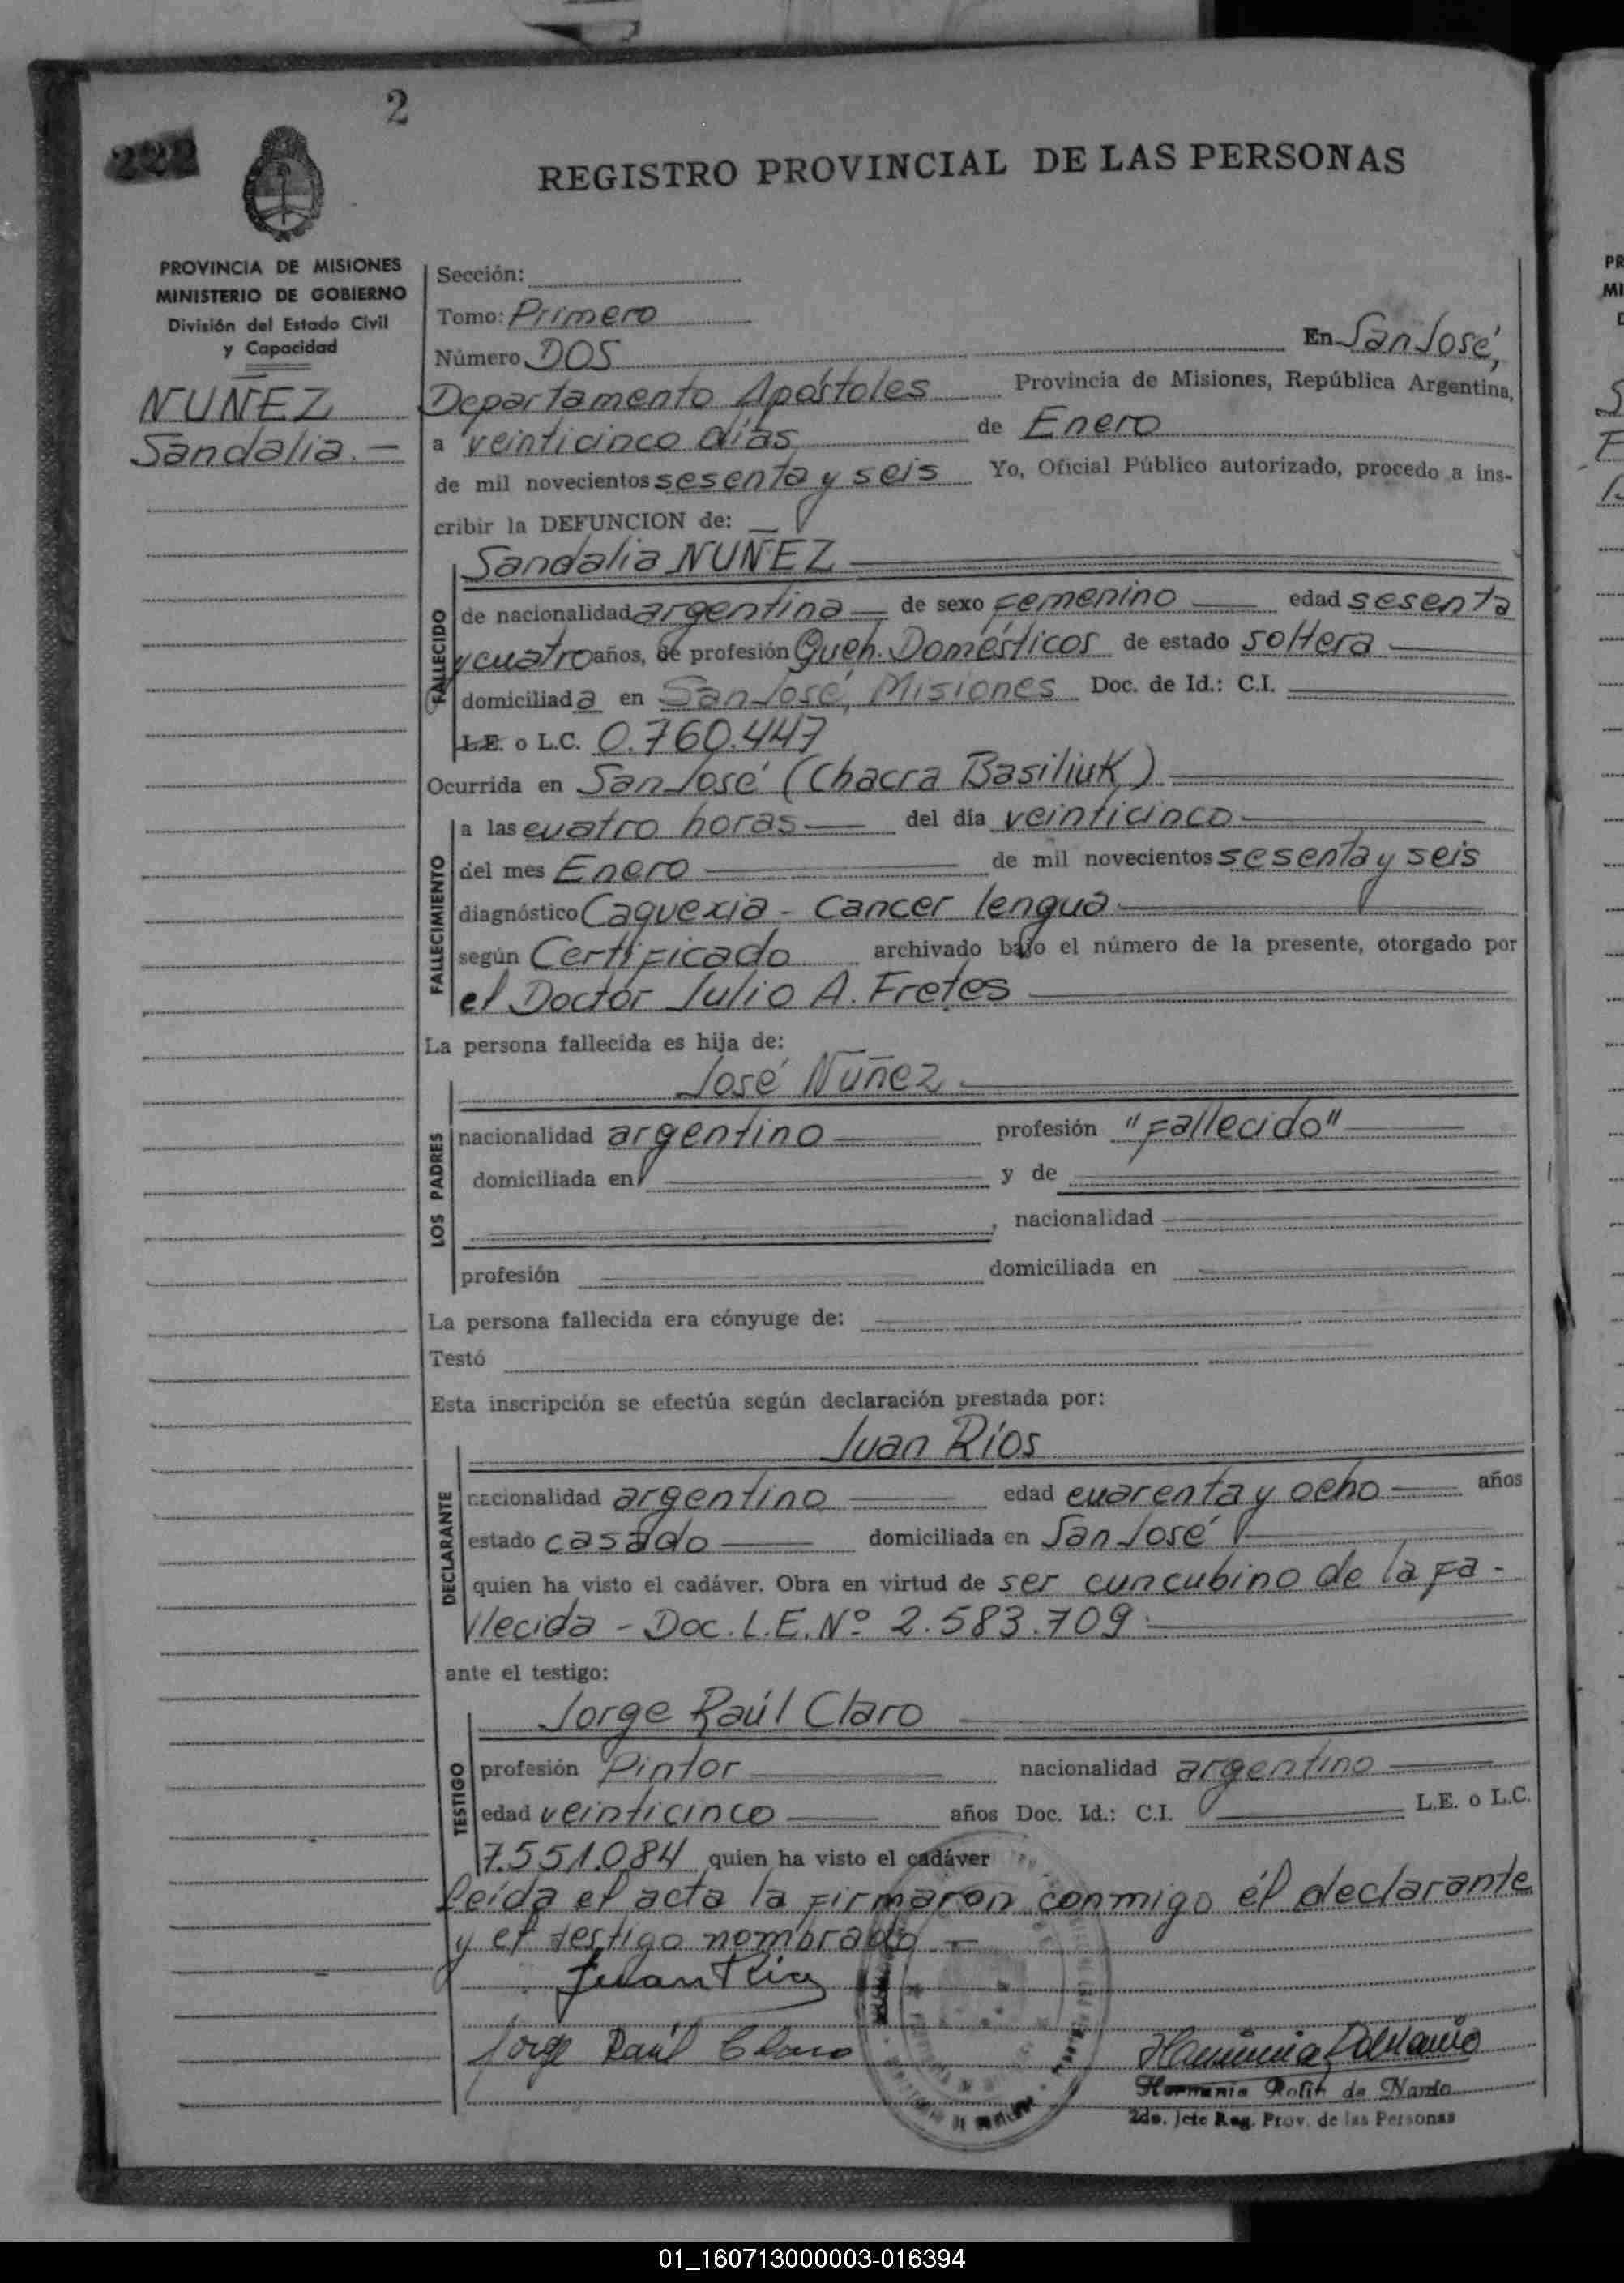 2
222
REGISTRO PROVINCIAL DE LAS PERSONAS
PROVINCIA DE MISIONES
MINISTERIO DE GOBIERNO
División del Estado Civil
y Capacidad
NUÑEZ
Sandalia.-
Sección:
Tomo: Primero
Número DOS En San José,
Departamento Apóstoles Provincia de Misiones, República Argentina,
a veinticinco días de Enero
de mil novecientos sesenta y seis Yo, Oficial Público autorizado, procedo a ins-
cribir la DEFUNCION de:
Sandalia NUÑEZ
FALLECIDO
de nacionalidad argentina de sexo femenino edad sesenta
y cuatro años, de profesión Queh. Domésticos de estado soltera
domiciliad a en San José, Misiones Doc. de Id.: C.I.
L.E. o L.C. 0.760.447
Ocurrida en San José (Chacra Basiliuk)
FALLECIMIENTO
a las cuatro horas del día veinticinco
del mes Enero de mil novecientos sesenta y seis
diagnóstico Caquexia - Cancer lengua
según Certificado archivado bajo el número de la presente, otorgado por
el Doctor Julio A. Fretes
La persona fallecida es hija de:
José Nuñez
LOS PADRES
nacionalidad argentino profesión "Fallecido"
domiciliada en y de
, nacionalidad
profesión domiciliada en
La persona fallecida era cónyuge de:
Testó
Esta inscripción se efectúa según declaración prestada por:
Juan Ríos
DECLARANTE
nacionalidad argentino edad cuarenta y ocho años
estado casado domiciliada en San José
quien ha visto el cadáver. Obra en virtud de ser cuncubino de la fa-
llecida - Doc. L.E. Nº 2.583.709.
ante el testigo:
Jorge Raúl Claro
TESTIGO
profesión Pintor nacionalidad argentino
edad veinticinco años Doc. Id.: C.I. L.E. o L.C.
7.551.084 quien ha visto el cadáver
Leída el acta la firmaron conmigo él declarante
y el testigo nombrado.-
Juan Rios
Jorge Raúl Claro
Herminia Rolín de Nardo
2do. Jefe Reg. Prov. de las Personas
PR
MI
01_160713000003-016394